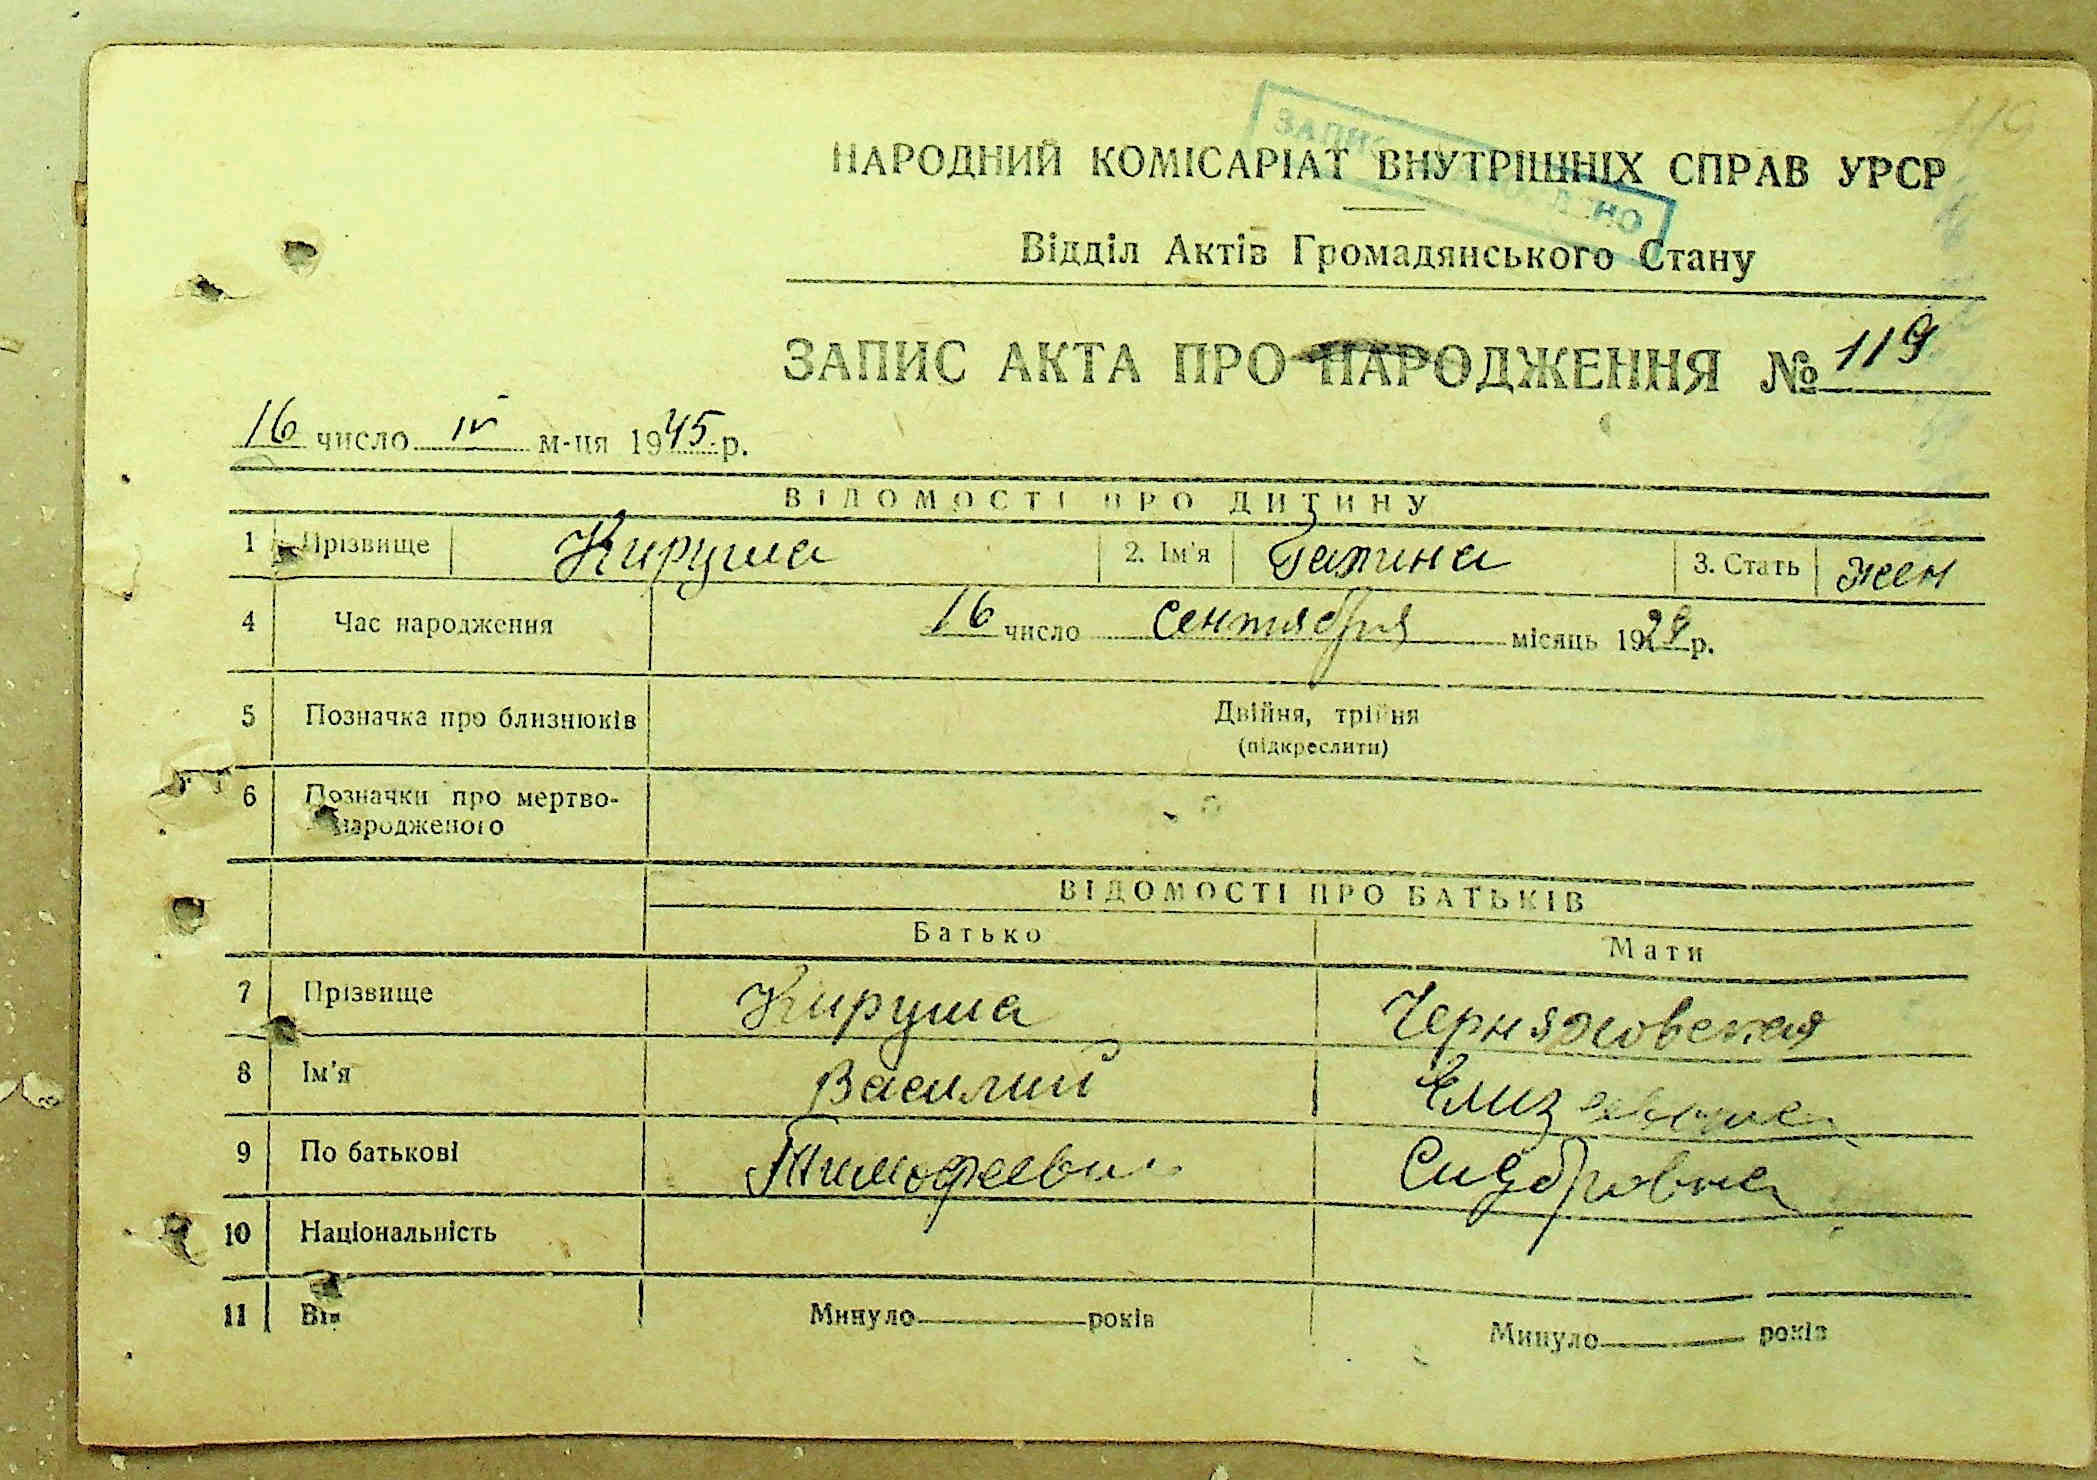 119
ЗАПИС
НАРОДНИЙ КОМІСАРІАТ ВНУТРІШНІХ СПРАВ УРСР
Відділ Актів Громадянського Стану
ЗАПИС АКТА ПРО НАРОДЖЕННЯ № 119
16 число IV м-ця 1945 р.
ВІДОМОСТІ ПРО ДИТИНУ
1 Прізвище Кируша 2. Ім'я Галина 3. Стать жен
4 Час народження 16 число сентября місяць 1929 р.
5 Позначка про близнюків Двійня, трійня
(підкреслити)
6 Позначки про мертво-
народженого
ВІДОМОСТІ ПРО БАТЬКІВ
Батько Мати
7 Прізвище Кируша Черняховская
8 Ім'я Василий Елизавета
9 По батькові Тимофеевич Сидоровна
10 Національність
11 Вік Минуло років Минуло років